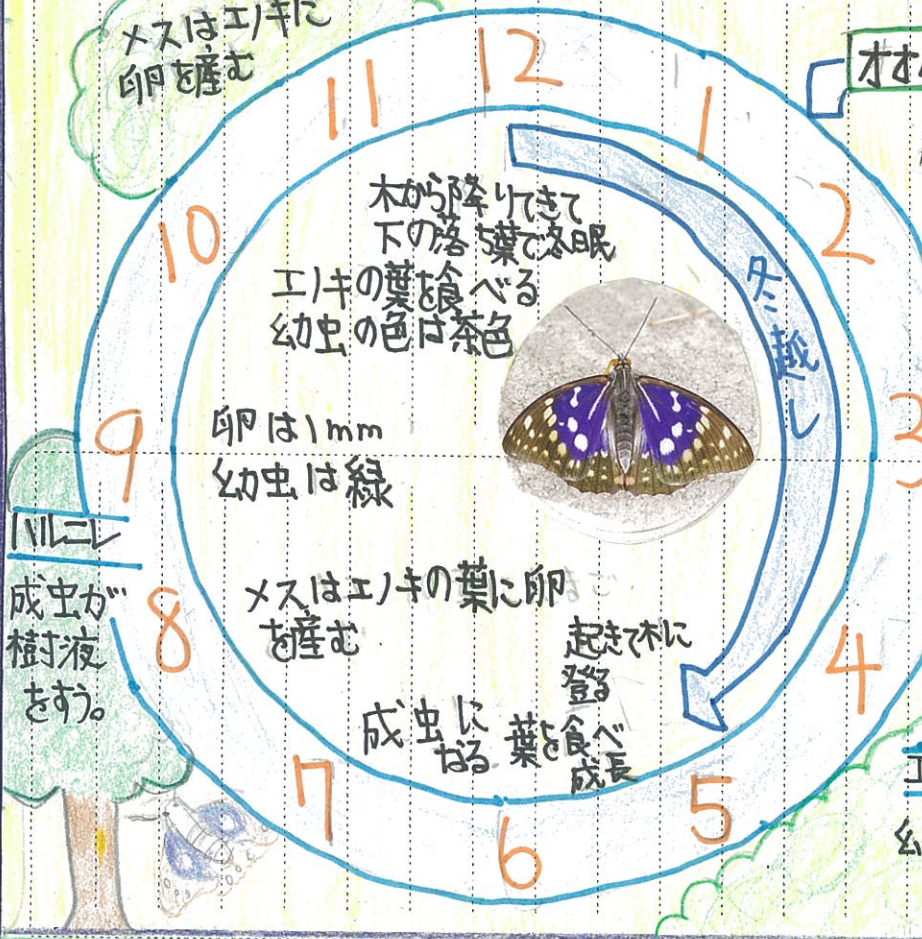 メスはエノキに
卵を産む
オオ
12
1
2
3
4
5
6
7
8
9
10
11
冬越し
木から降りてきて
下の落ち葉で冬眠
エノキの葉を食べる
幼虫の色は茶色
卵は1mm
幼虫は緑
メスはエノキの葉に卵
を産む
起きて木に
登る
葉を食べ
成長
成虫に
なる
ハルニレ
成虫が
樹液
をすう。
エ
幼